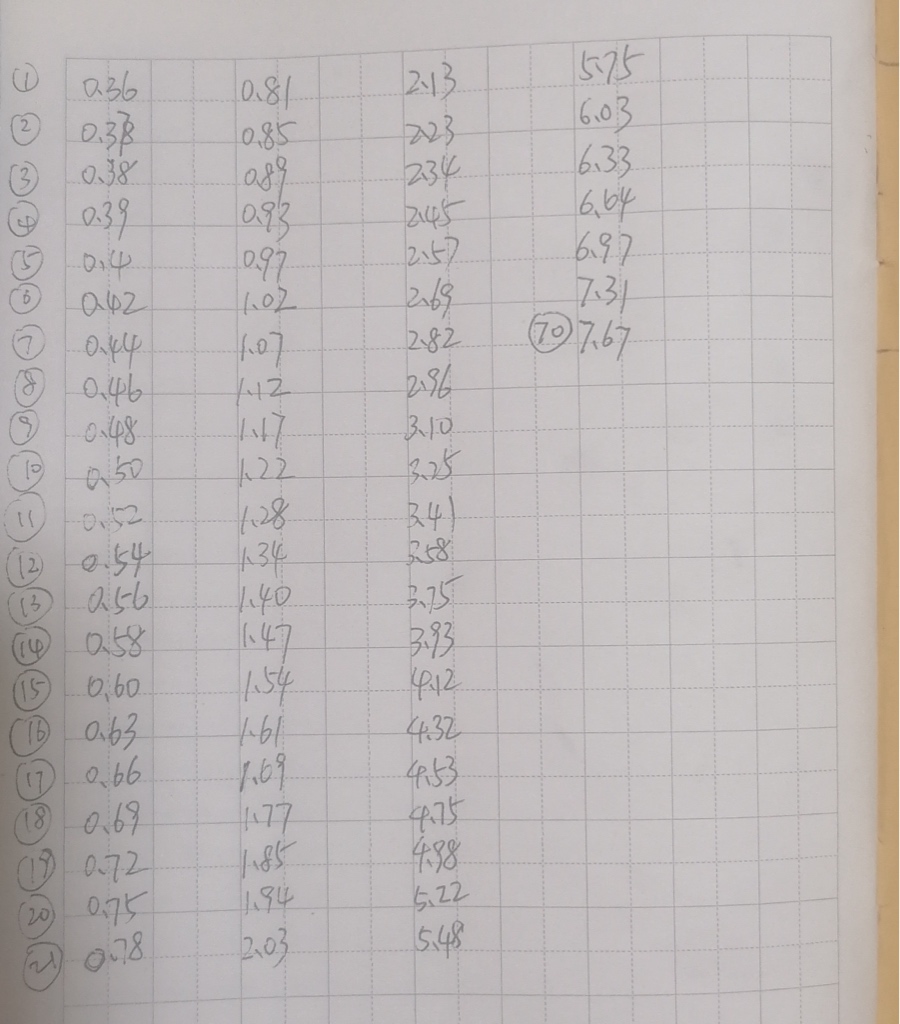 ① 0.36 0.81 2.13 5.75
② 0.38 0.85 2.23 6.03
③ 0.38 0.89 2.34 6.33
④ 0.39 0.93 2.45 6.64
⑤ 0.4 0.97 2.57 6.97
⑥ 0.42 1.02 2.69 7.31
⑦ 0.44 1.07 2.82 ⑦⓪ 7.67
⑧ 0.46 1.12 2.96
⑨ 0.48 1.17 3.10
⑩ 0.50 1.22 3.25
⑪ 0.52 1.28 3.41
⑫ 0.54 1.34 3.58
⑬ 0.56 1.40 3.75
⑭ 0.58 1.47 3.93
⑮ 0.60 1.54 4.12
⑯ 0.63 1.61 4.32
⑰ 0.66 1.69 4.53
⑱ 0.69 1.77 4.75
⑲ 0.72 1.85 4.98
⑳ 0.75 1.94 5.22
㉑ 0.78 2.03 5.48